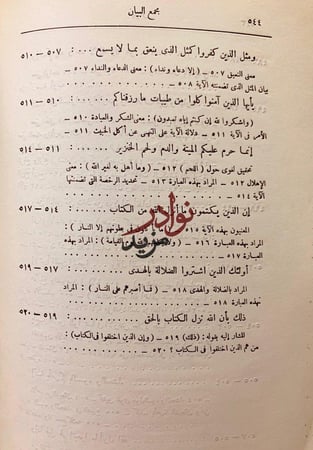 ٥٤٤ مجمع البيان
ومثل الذين كفروا كمثل الذى ينعق بما لا يسمع ... ٥٠٧ - ٥١٠
معنى النعيق ٥٠٧ ـ ( إلا دعاء ونداء ) : معنى الدعاء والنداء ٥٠٧ ـ
بيان المثل الذى تضمنته الآية ٥٠٨
يأيها الذين آمنوا كلوا من طيبات ما رزقناكم ... ٥١٠ - ٥١١
( واشكروا لله إن كنتم إياه تعبدون ) : معنى الشكر والعبادة و
الأمر فى الآية ٥١١ ـ دلالة الآية على النهى عن أكل الخبيث ٥١١
إنما حرم عليكم الميتة والدم ولحم الخنزير ... ٥١١ - ٥١٤
تحقيق لغوى حول ( اللحم ) ٥١٢ ـ ( وما أهل به لغير الله ) : معنى
الإهلال ٥١٢ ـ المراد بهذه العبارة ٥١٣ ـ تحديد الرخصة التى تضمنتها
إن الذين يكتمون ما أنزل الله من الكتاب ... ٥١٤ - ٥١٧
المعنيون بهذه الآية فى بطونهم إلا النار ) :
المراد بهذه العبارة ٥١٦ ـ ( ولا القيامة ) : المراد بهذه
العبارة ٥١٧
أولئك الذين اشتروا الضلالة بالهدى ٥١٧ - ٥١٩
المراد بالضلالة والهدى ٥١٨ ـ ( فما أصبرهم على النار ) : المراد
بهذه العبارة ٥١٨
ذلك بأن الله نزل الكتاب بالحق ٥١٩ - ٥٢٠
المشار إليه بقوله : ( ذلك ) ٥١٩ ـ ( وإن الذين اختلفوا فى الكتاب ) :
من هم الذين اختلفوا فى الكتاب ؟ ٥٢٠
نوادر
مزيد